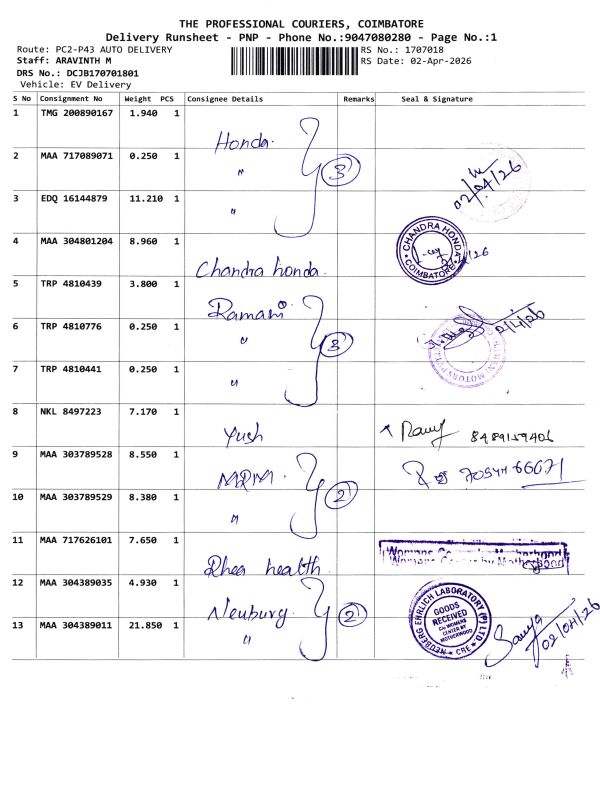 THE PROFESSIONAL COURIERS, COIMBATORE
Delivery Runsheet - PNP - Phone No.:9047080280 - Page No.:1
Route: PC2-P43 AUTO DELIVERY
RS No.: 1707018
Staff: ARAVINTH M
RS Date: 02-Apr-2026
DRS No.: DCJB170701801
Vehicle: EV Delivery
S No Consignment No Weight PCS Consignee Details Remarks Seal & Signature
1 TMG 200890167 1.940 1 Honda
2 MAA 717089071 0.250 1 " 3 02/04/26
3 EDQ 16144879 11.210 1 "
4 MAA 304801204 8.960 1 Chandra honda CHANDRA HONDA COIMBATORE
5 TRP 4810439 3.800 1 Ramani
6 TRP 4810776 0.250 1 " 3 2/4/26
7 TRP 4810441 0.250 1 "
8 NKL 8497223 7.170 1 Yush 8489159406
9 MAA 303789528 8.550 1 MRM
10 MAA 303789529 8.380 1 " 2
11 MAA 717626101 7.650 1 Rhea health Womans Center by Motherhood
12 MAA 304389035 4.930 1 Neuburg 2
13 MAA 304389011 21.850 1 "
NEUBERG EHRLICH LABORATORY (P) LTD. CBE
GOODS
RECEIVED
C/o WOMENS
CENTER BY
MOTHERHOOD
02/04/26